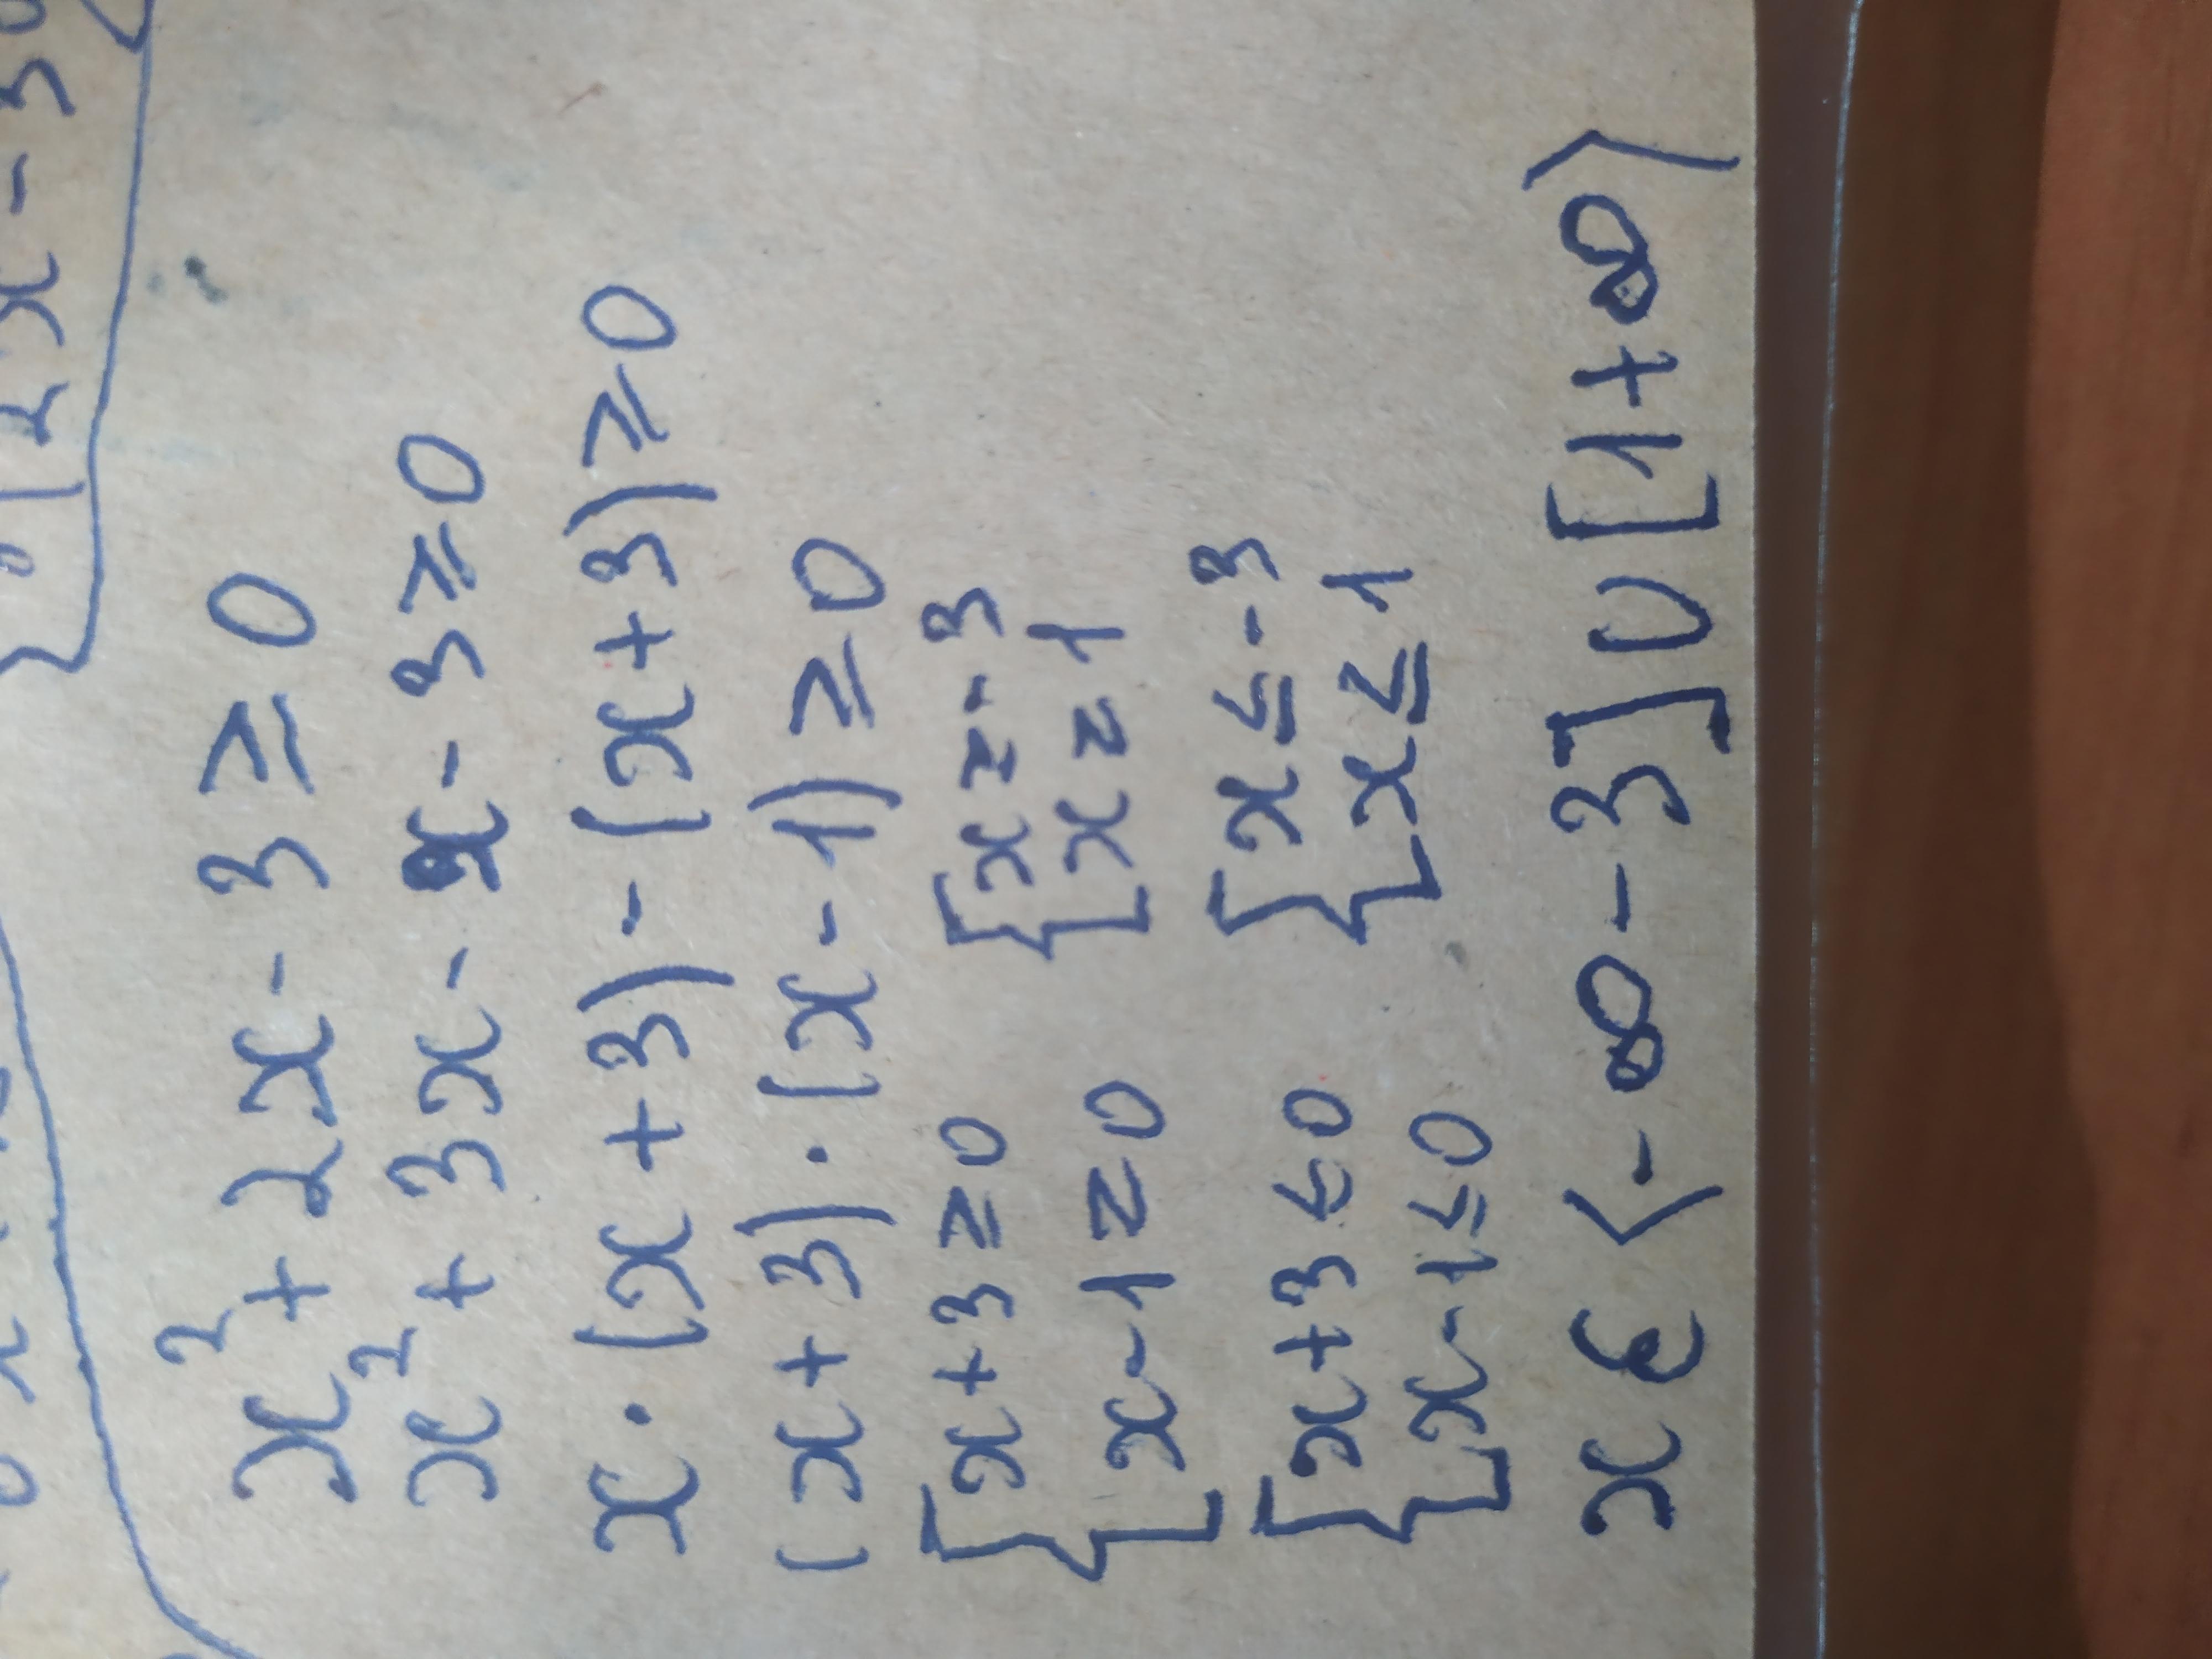 x² + 2x - 3 ≥ 0
x² + 3x - x - 3 ≥ 0
x · (x + 3) - (x + 3) ≥ 0
(x + 3) · (x - 1) ≥ 0
{ x + 3 ≥ 0 { x ≥ -3
{ x - 1 ≥ 0 { x ≥ 1
{ x + 3 ≤ 0 { x ≤ -3
{ x - 1 ≤ 0 { x ≤ 1
x ∈ ⟨-∞ - 3] ∪ [1 + ∞⟩